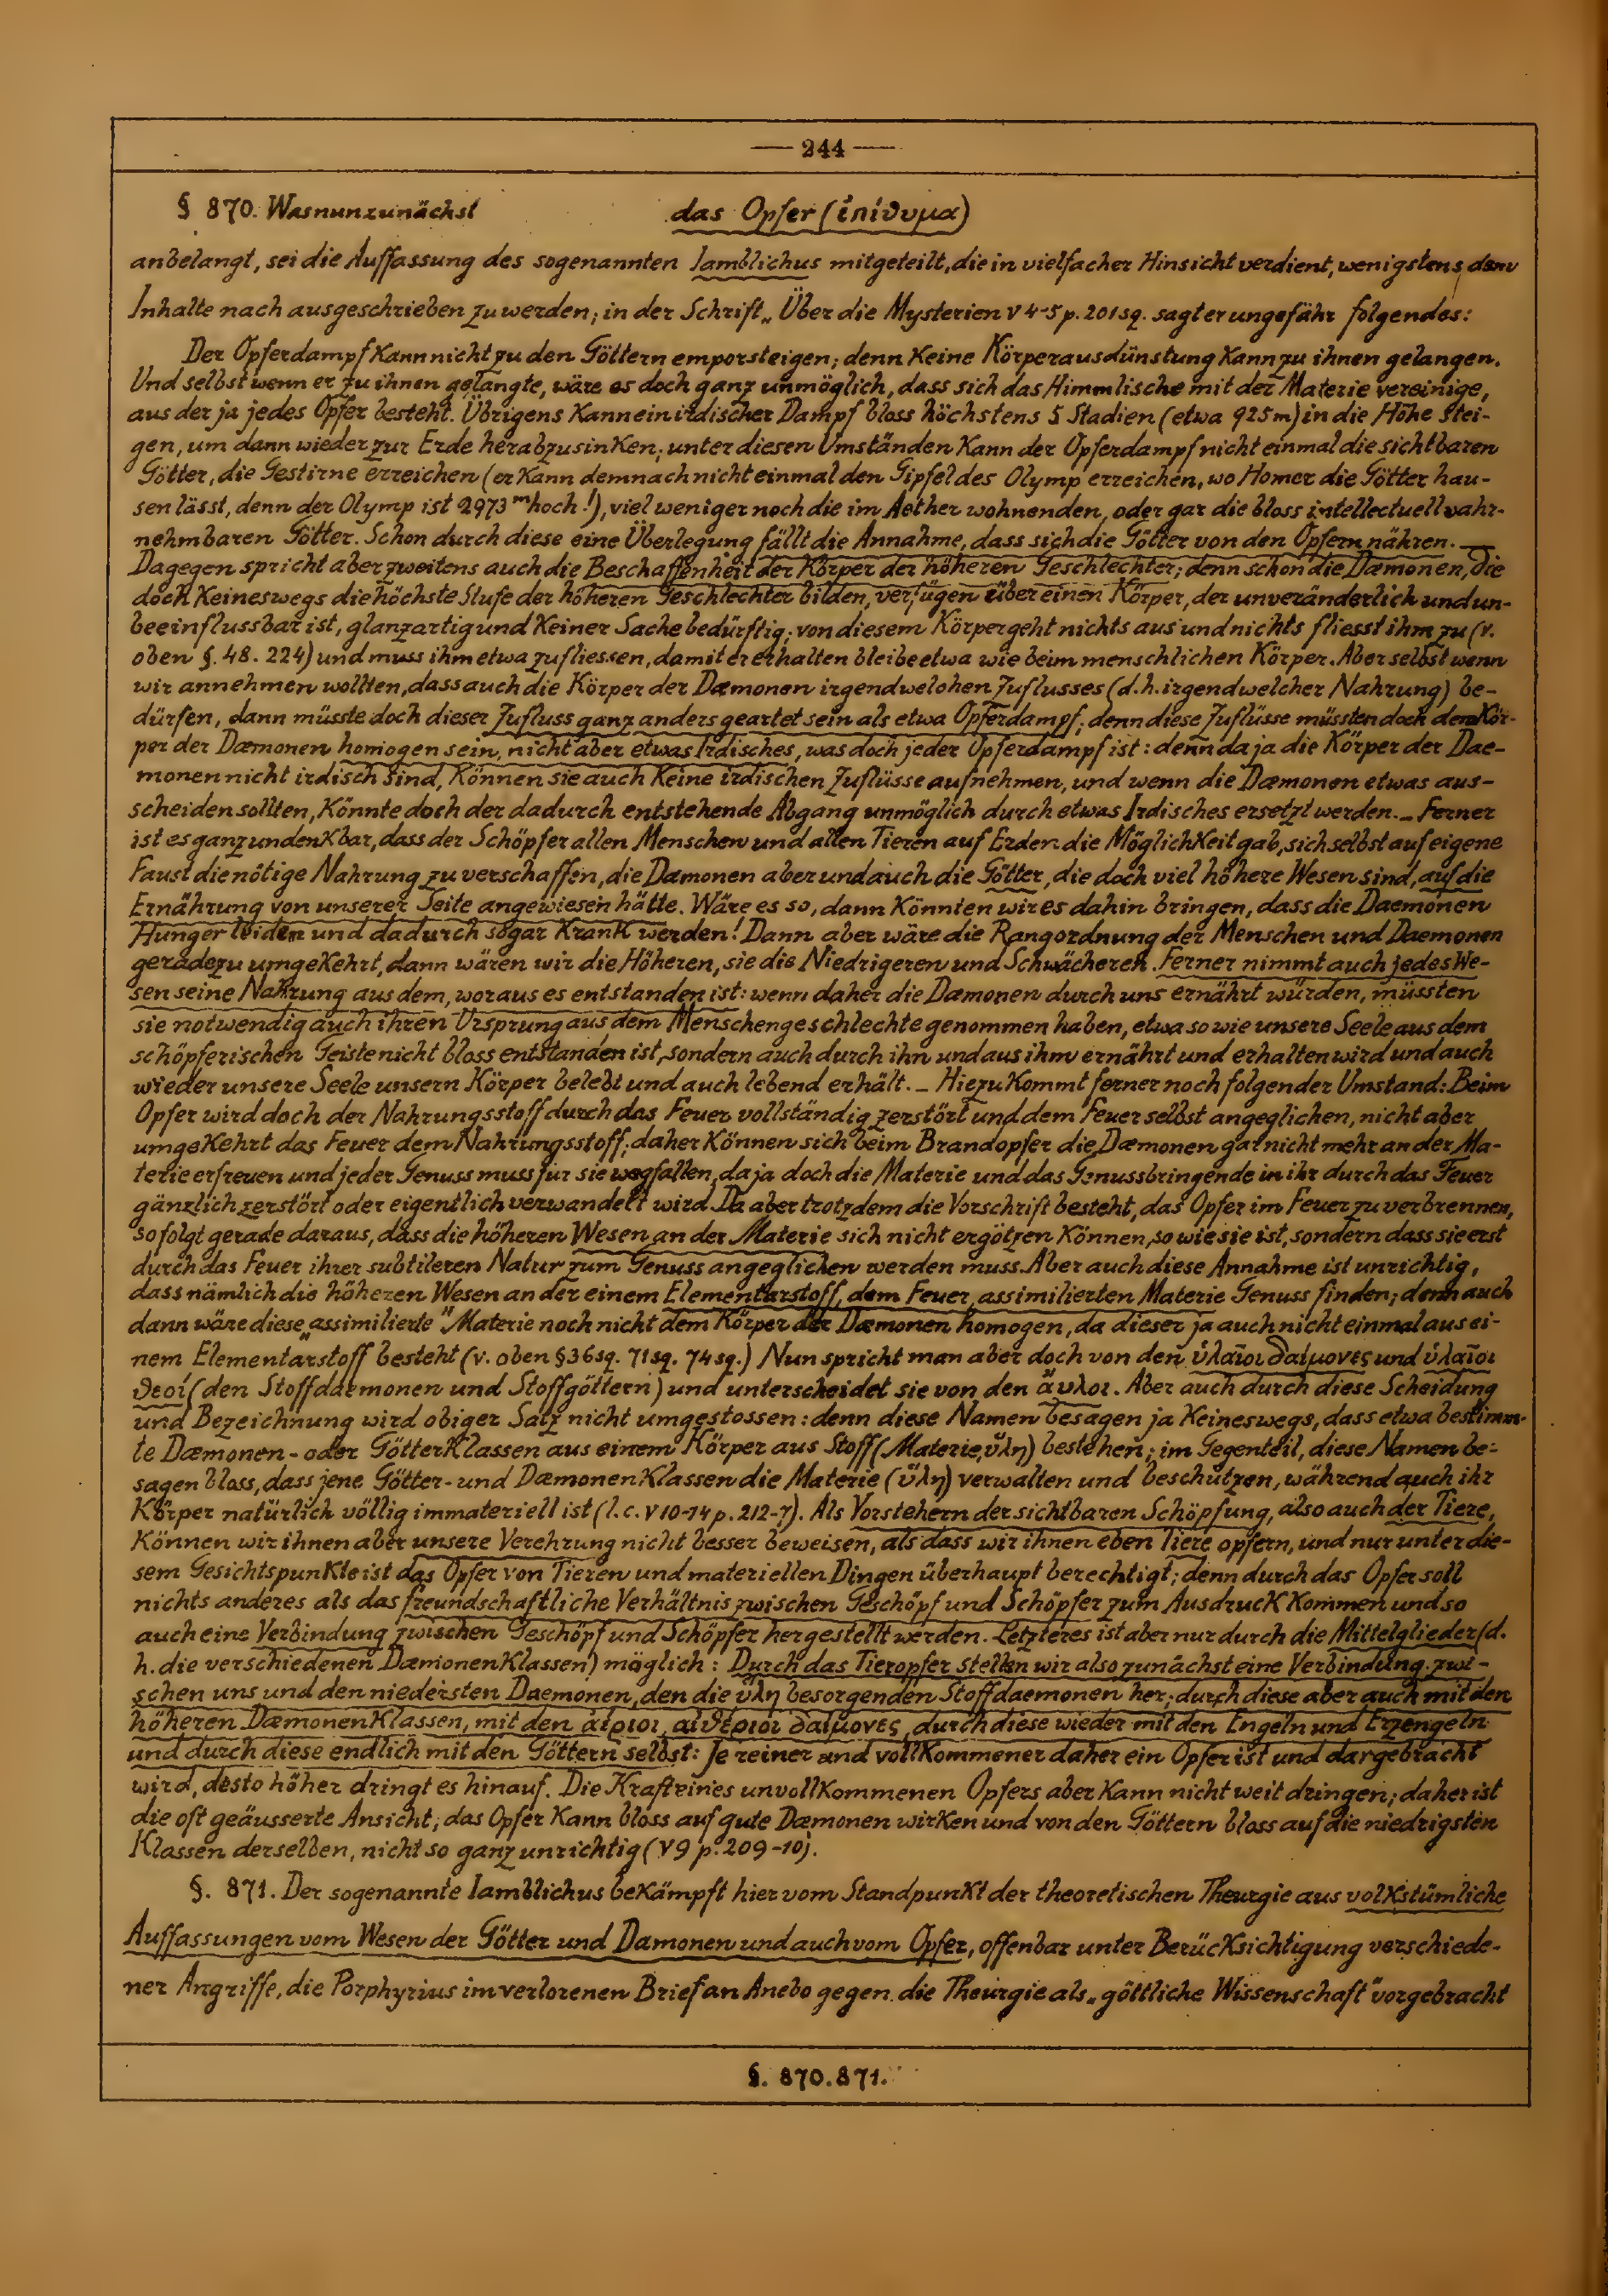 — 244 —
§ 870. Was nun zunächst das Opfer (ἐπίθυμα)
anbelangt, sei die Auffassung des sogenannten Iamblichus mitgeteilt, die in vielfacher Hinsicht verdient, wenigstens dem
Inhalte nach ausgeschrieben zu werden; in der Schrift „Über die Mysterien V 4-5 p. 201 sq. sagt er ungefähr folgendes:
Der Opferdampf kann nicht zu den Göttern emporsteigen; denn keine Körperausdünstung kann zu ihnen gelangen.
Und selbst wenn er zu ihnen gelangte, wäre es doch ganz unmöglich, dass sich das Himmlische mit der Materie vereinige,
aus der ja jedes Opfer besteht. Übrigens kann ein irdischer Dampf bloss höchstens 5 Stadien (etwa 925 m) in die Höhe stei-
gen, um dann wieder zur Erde herabzusinken; unter diesen Umständen kann der Opferdampf nicht einmal die sichtbaren
Götter, die Gestirne erreichen (er kann demnach nicht einmal den Gipfel des Olymp erreichen, wo Homer die Götter hau-
sen lässt, denn der Olymp ist 2973 m hoch!), viel weniger noch die im Aether wohnenden, oder gar die bloss intellectuell wahr-
nehmbaren Götter. Schon durch diese eine Überlegung fällt die Annahme, dass sich die Götter von den Opfern nähren. —
Dagegen spricht aber zweitens auch die Beschaffenheit der Körper der höheren Geschlechter; denn schon die Dæmonen, die
doch keineswegs die höchste Stufe der höheren Geschlechter bilden, verfügen über einen Körper, der unveränderlich und un-
beeinflussbar ist, glanzartig und keiner Sache bedürftig; von diesem Körper geht nichts aus und nichts fliesst ihm zu (v.
oben §. 48. 224) und muss ihm etwa zufliessen, damit er erhalten bleibe etwa wie beim menschlichen Körper. Aber selbst wenn
wir annehmen wollten, dass auch die Körper der Dæmonen irgendwelchen Zuflusses (d. h. irgendwelcher Nahrung) be-
dürfen, dann müsste doch dieser Zufluss ganz anders geartet sein als etwa Opferdampf; denn diese Zuflüsse müssten doch dem Kör-
per der Dæmonen homogen sein, nicht aber etwas Irdisches, was doch jeder Opferdampf ist: denn da ja die Körper der Dae-
monen nicht irdisch sind, können sie auch keine irdischen Zuflüsse aufnehmen, und wenn die Dæmonen etwas aus-
scheiden sollten, könnte doch der dadurch entstehende Abgang unmöglich durch etwas Irdisches ersetzt werden. — Ferner
ist es ganz undenkbar, dass der Schöpfer allen Menschen und allen Tieren auf Erden die Möglichkeit gab, sich selbst auf eigene
Faust die nötige Nahrung zu verschaffen, die Dæmonen aber und auch die Götter, die doch viel höhere Wesen sind, auf die
Ernährung von unserer Seite angewiesen hätte. Wäre es so, dann könnten wir es dahin bringen, dass die Daemonen
Hunger leiden und dadurch sogar krank werden! Dann aber wäre die Rangordnung der Menschen und Daemonen
geradezu umgekehrt, dann wären wir die Höheren, sie die Niedrigeren und Schwächeren. Ferner nimmt auch jedes We-
sen seine Nahrung aus dem, woraus es entstanden ist: wenn daher die Dæmonen durch uns ernährt würden, müssten
sie notwendig auch ihren Ursprung aus dem Menschengeschlechte genommen haben, etwa so wie unsere Seele aus dem
schöpferischen Geiste nicht bloss entstanden ist, sondern auch durch ihn und aus ihm ernährt und erhalten wird und auch
wieder unsere Seele unsern Körper belebt und auch lebend erhält. — Hiezu kommt ferner noch folgender Umstand: Beim
Opfer wird doch der Nahrungsstoff durch das Feuer vollständig zerstört und dem Feuer selbst angeglichen, nicht aber
umgekehrt das Feuer dem Nahrungsstoff; daher können sich beim Brandopfer die Dæmonen gar nicht mehr an der Ma-
terie erfreuen und jeder Genuss muss für sie wegfallen, da ja doch die Materie und das Genussbringende in ihr durch das Feuer
gänzlich zerstört oder eigentlich verwandelt wird. Da aber trotzdem die Vorschrift besteht, das Opfer im Feuer zu verbrennen,
so folgt gerade daraus, dass die höheren Wesen an der Materie sich nicht ergötzen können, so wie sie ist, sondern dass sie erst
durch das Feuer ihrer subtileren Natur zum Genuss angeglichen werden muss. Aber auch diese Annahme ist unrichtig,
dass nämlich die höheren Wesen an der einem Elementarstoff, dem Feuer, assimilierten Materie Genuss finden; denn auch
dann wäre diese „assimilierte“ Materie noch nicht dem Körper der Dæmonen homogen, da dieser ja auch nicht einmal aus ei-
nem Elementarstoff besteht (v. oben § 36 sq. 71 sq. 74 sq.) Nun spricht man aber doch von den ὑλαῖοι δαίμονες und ὑλαῖοι
θεοί (den Stoffdaemonen und Stoffgöttern) und unterscheidet sie von den ἄυλοι. Aber auch durch diese Scheidung
und Bezeichnung wird obiger Satz nicht umgestossen: denn diese Namen besagen ja keineswegs, dass etwa bestimm-
te Dæmonen- oder Götterklassen aus einem Körper aus Stoff (Materie, ὕλη) bestehen; im Gegenteil, diese Namen be-
sagen bloss, dass jene Götter- und Dæmonenklassen die Materie (ὕλη) verwalten und beschützen, während auch ihr
Körper natürlich völlig immateriell ist (l. c. V 10-14 p. 212-7). Als Vorstehern der sichtbaren Schöpfung, also auch der Tiere,
können wir ihnen aber unsere Verehrung nicht besser beweisen, als dass wir ihnen eben Tiere opfern, und nur unter die-
sem Gesichtspunkte ist das Opfer von Tieren und materiellen Dingen überhaupt berechtigt; denn durch das Opfer soll
nichts anderes als das freundschaftliche Verhältnis zwischen Geschöpf und Schöpfer zum Ausdruck kommen und so
auch eine Verbindung zwischen Geschöpf und Schöpfer hergestellt werden. Letzteres ist aber nur durch die Mittelglieder (d.
h. die verschiedenen Dæmonenklassen) möglich: Durch das Tieropfer stellen wir also zunächst eine Verbindung zwi-
schen uns und den niedersten Daemonen, den die ὕλη besorgenden Stoffdaemonen her; durch diese aber auch mit den
höheren Dæmonenklassen, mit den ἀέριοι, αἰθέριοι δαίμονες, durch diese wieder mit den Engeln und Erzengeln
und durch diese endlich mit den Göttern selbst: Je reiner und vollkommener daher ein Opfer ist und dargebracht
wird, desto höher dringt es hinauf. Die Kraft eines unvollkommenen Opfers aber kann nicht weit dringen; daher ist
die oft geäusserte Ansicht, das Opfer kann bloss auf gute Dæmonen wirken und von den Göttern bloss auf die niedrigsten
Klassen derselben, nicht so ganz unrichtig (V 9 p. 209-10).
§. 871. Der sogenannte Iamblichus bekämpft hier vom Standpunkt der theoretischen Theurgie aus volkstümliche
Auffassungen vom Wesen der Götter und Dämonen und auch vom Opfer, offenbar unter Berücksichtigung verschiede-
ner Angriffe, die Porphyrius im verlorenen Brief an Anebo gegen die Theurgie als „göttliche Wissenschaft“ vorgebracht
§. 870. 871.